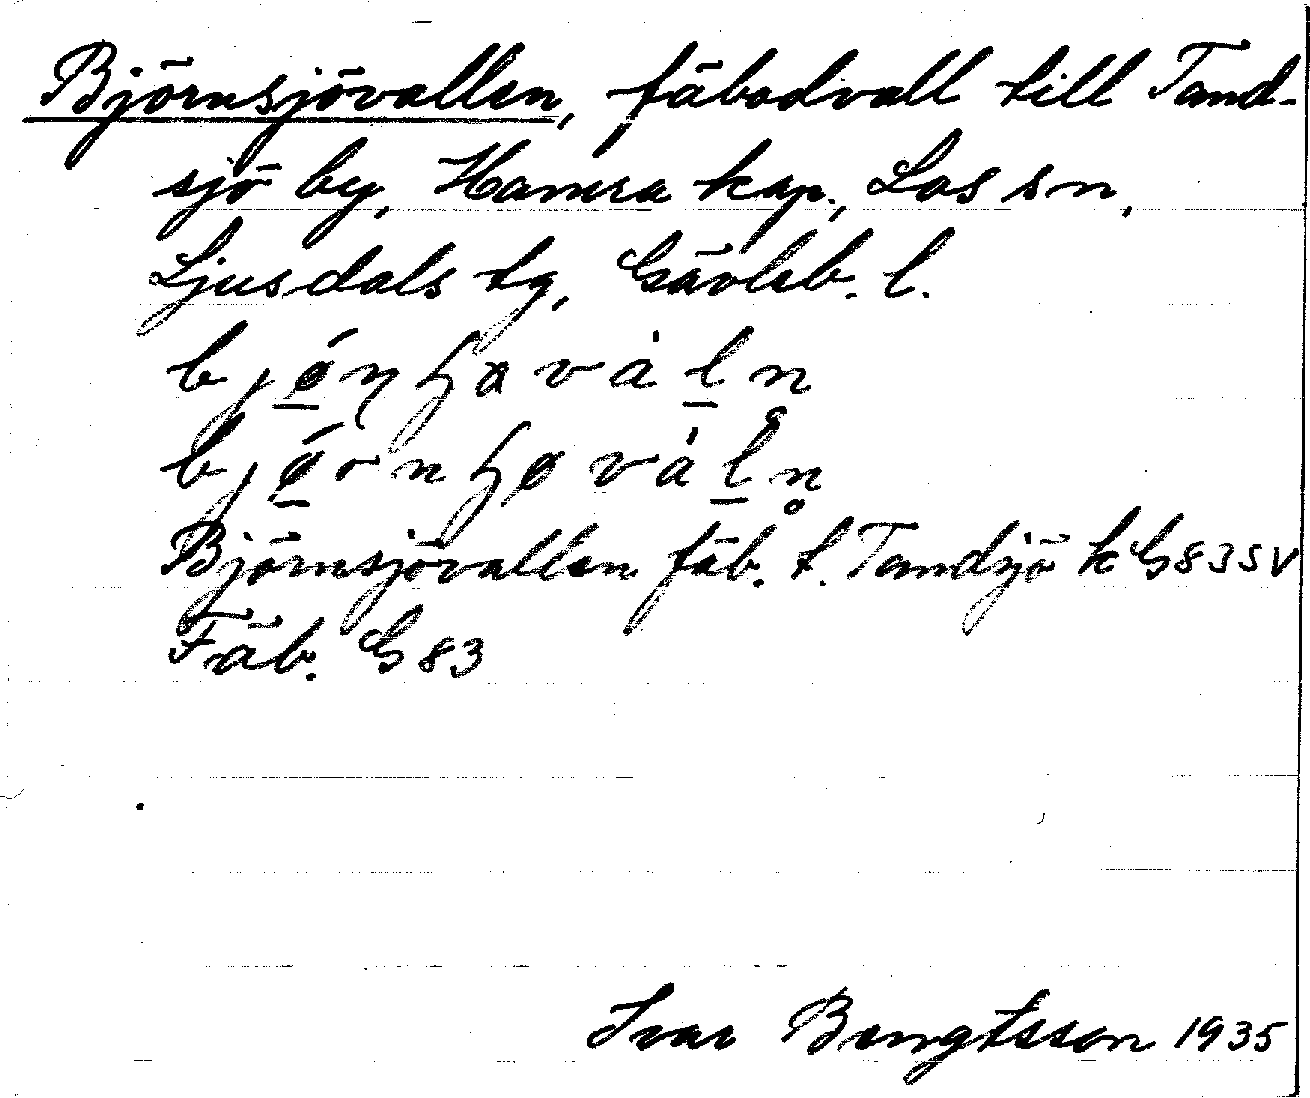 Björnsjövallen, fäbodvall till Tand-
sjö by, Hamra kap., Los sn,
Ljusdals tg, Gävleb. l.
Björnsjövallen fäb. t. Tandsjö k G83SV
Fäb. G83
Ivar Bengtsson 1935